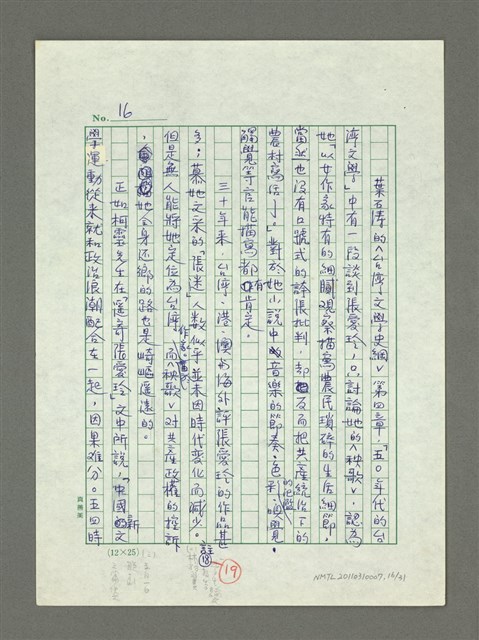 No. 16
葉石濤的〈台灣文學史綱〉第四章,「五○年代的台
灣文學」中有一段談到張愛玲,討論她的〈秧歌〉,認為
她「以女作家特有的細膩觀察描寫農民瑣碎的生活細節,
當然也沒有口號式的誇張批判,却反而把共產統治下的
農村寫活」,對於她小說中音樂的節奏、色彩、嗅覺、
觸覺等官能描寫都有肯定。
三十年來,台灣、港、澳的海外評張愛玲的作品甚
多;慕她文采的「張迷」人數似乎並未因時代變化而減少。
但是無人能將她定位為台灣作家,而〈秧歌〉對共產政權的控訴
,她全身还鄉的路也是崎嶇遙遠的。
正如柯靈先生在「遙寄張愛玲」文中所說,「中國新文
學運動從來就和政治浪潮配合在一起,因果难分。五四時
註
18
19
(12×25)
NMTL20110310007, 16/21